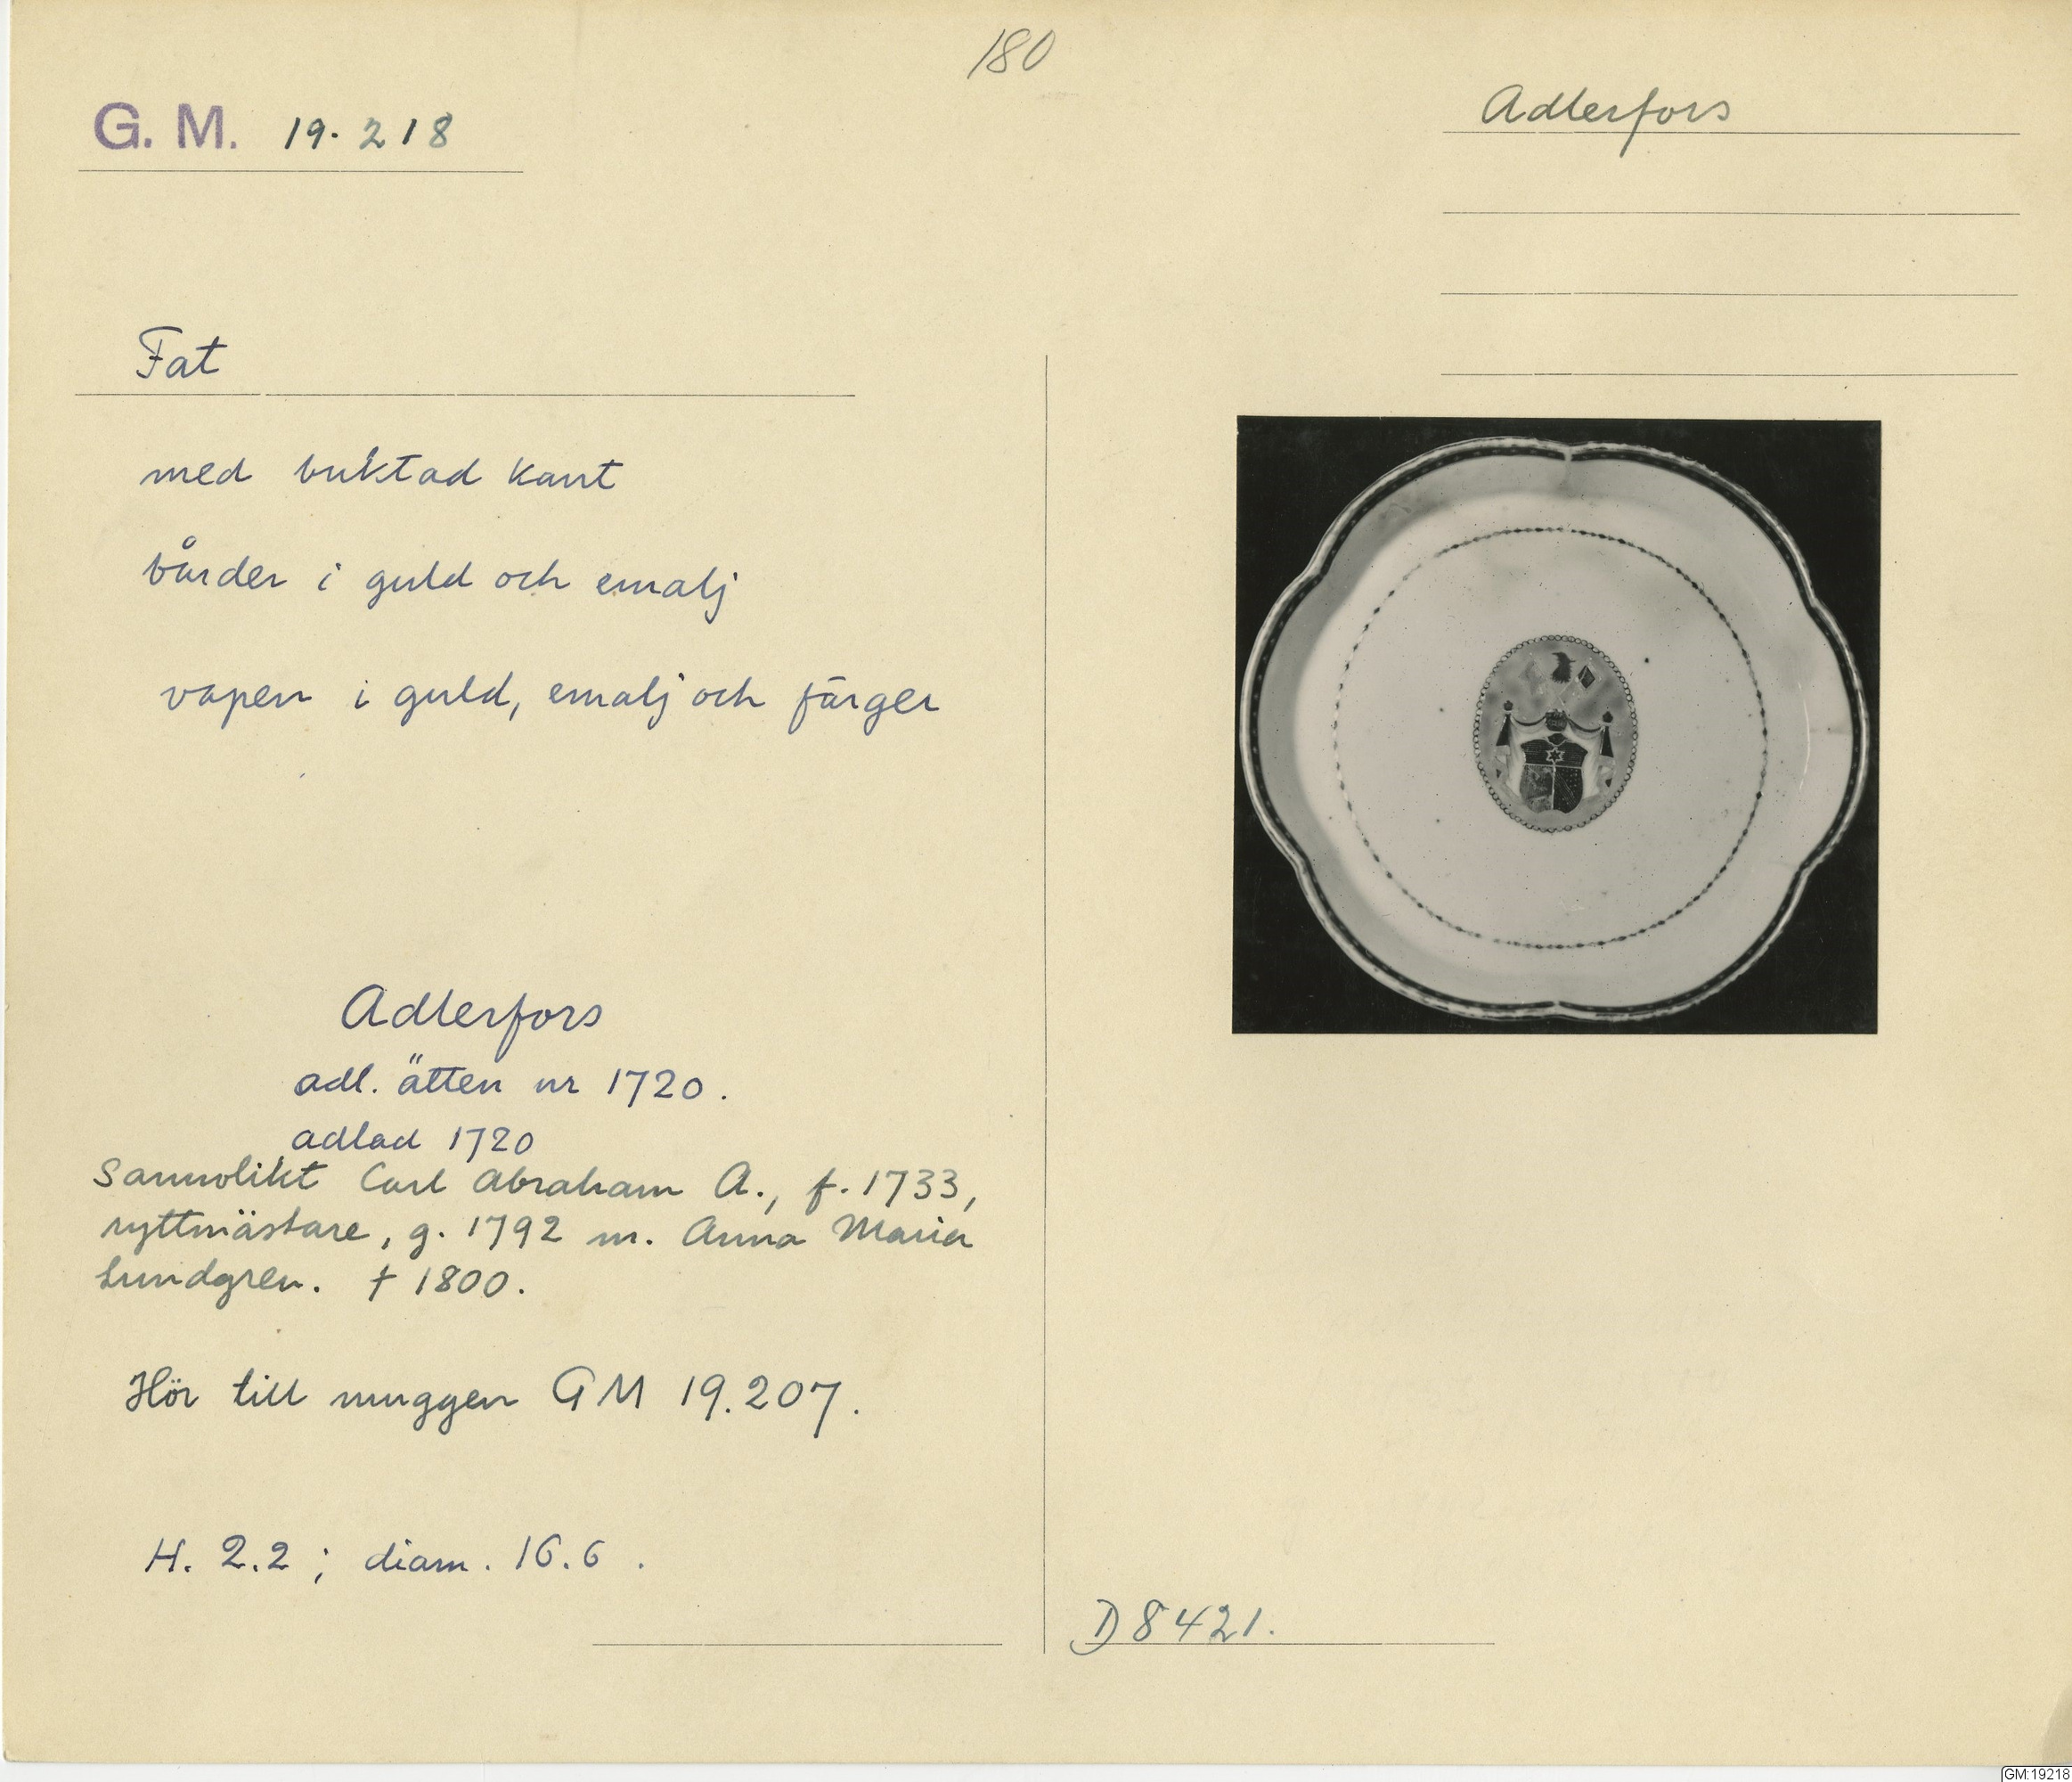 180
G. M. 19.218
Adlerfors
Fat
med buktad kant
bårder i guld och emalj
vapen i guld, emalj och färger
Adlerfors
adl. ätten nr 1720.
adlad 1720
Sannolikt Carl Abraham A., f. 1733,
ryttmästare, g. 1792 m. Anna Maria
Lundgren. † 1800.
Hör till muggen GM 19.207.
H. 2.2 ; diam. 16.6 .
D 8421.
GM:19218